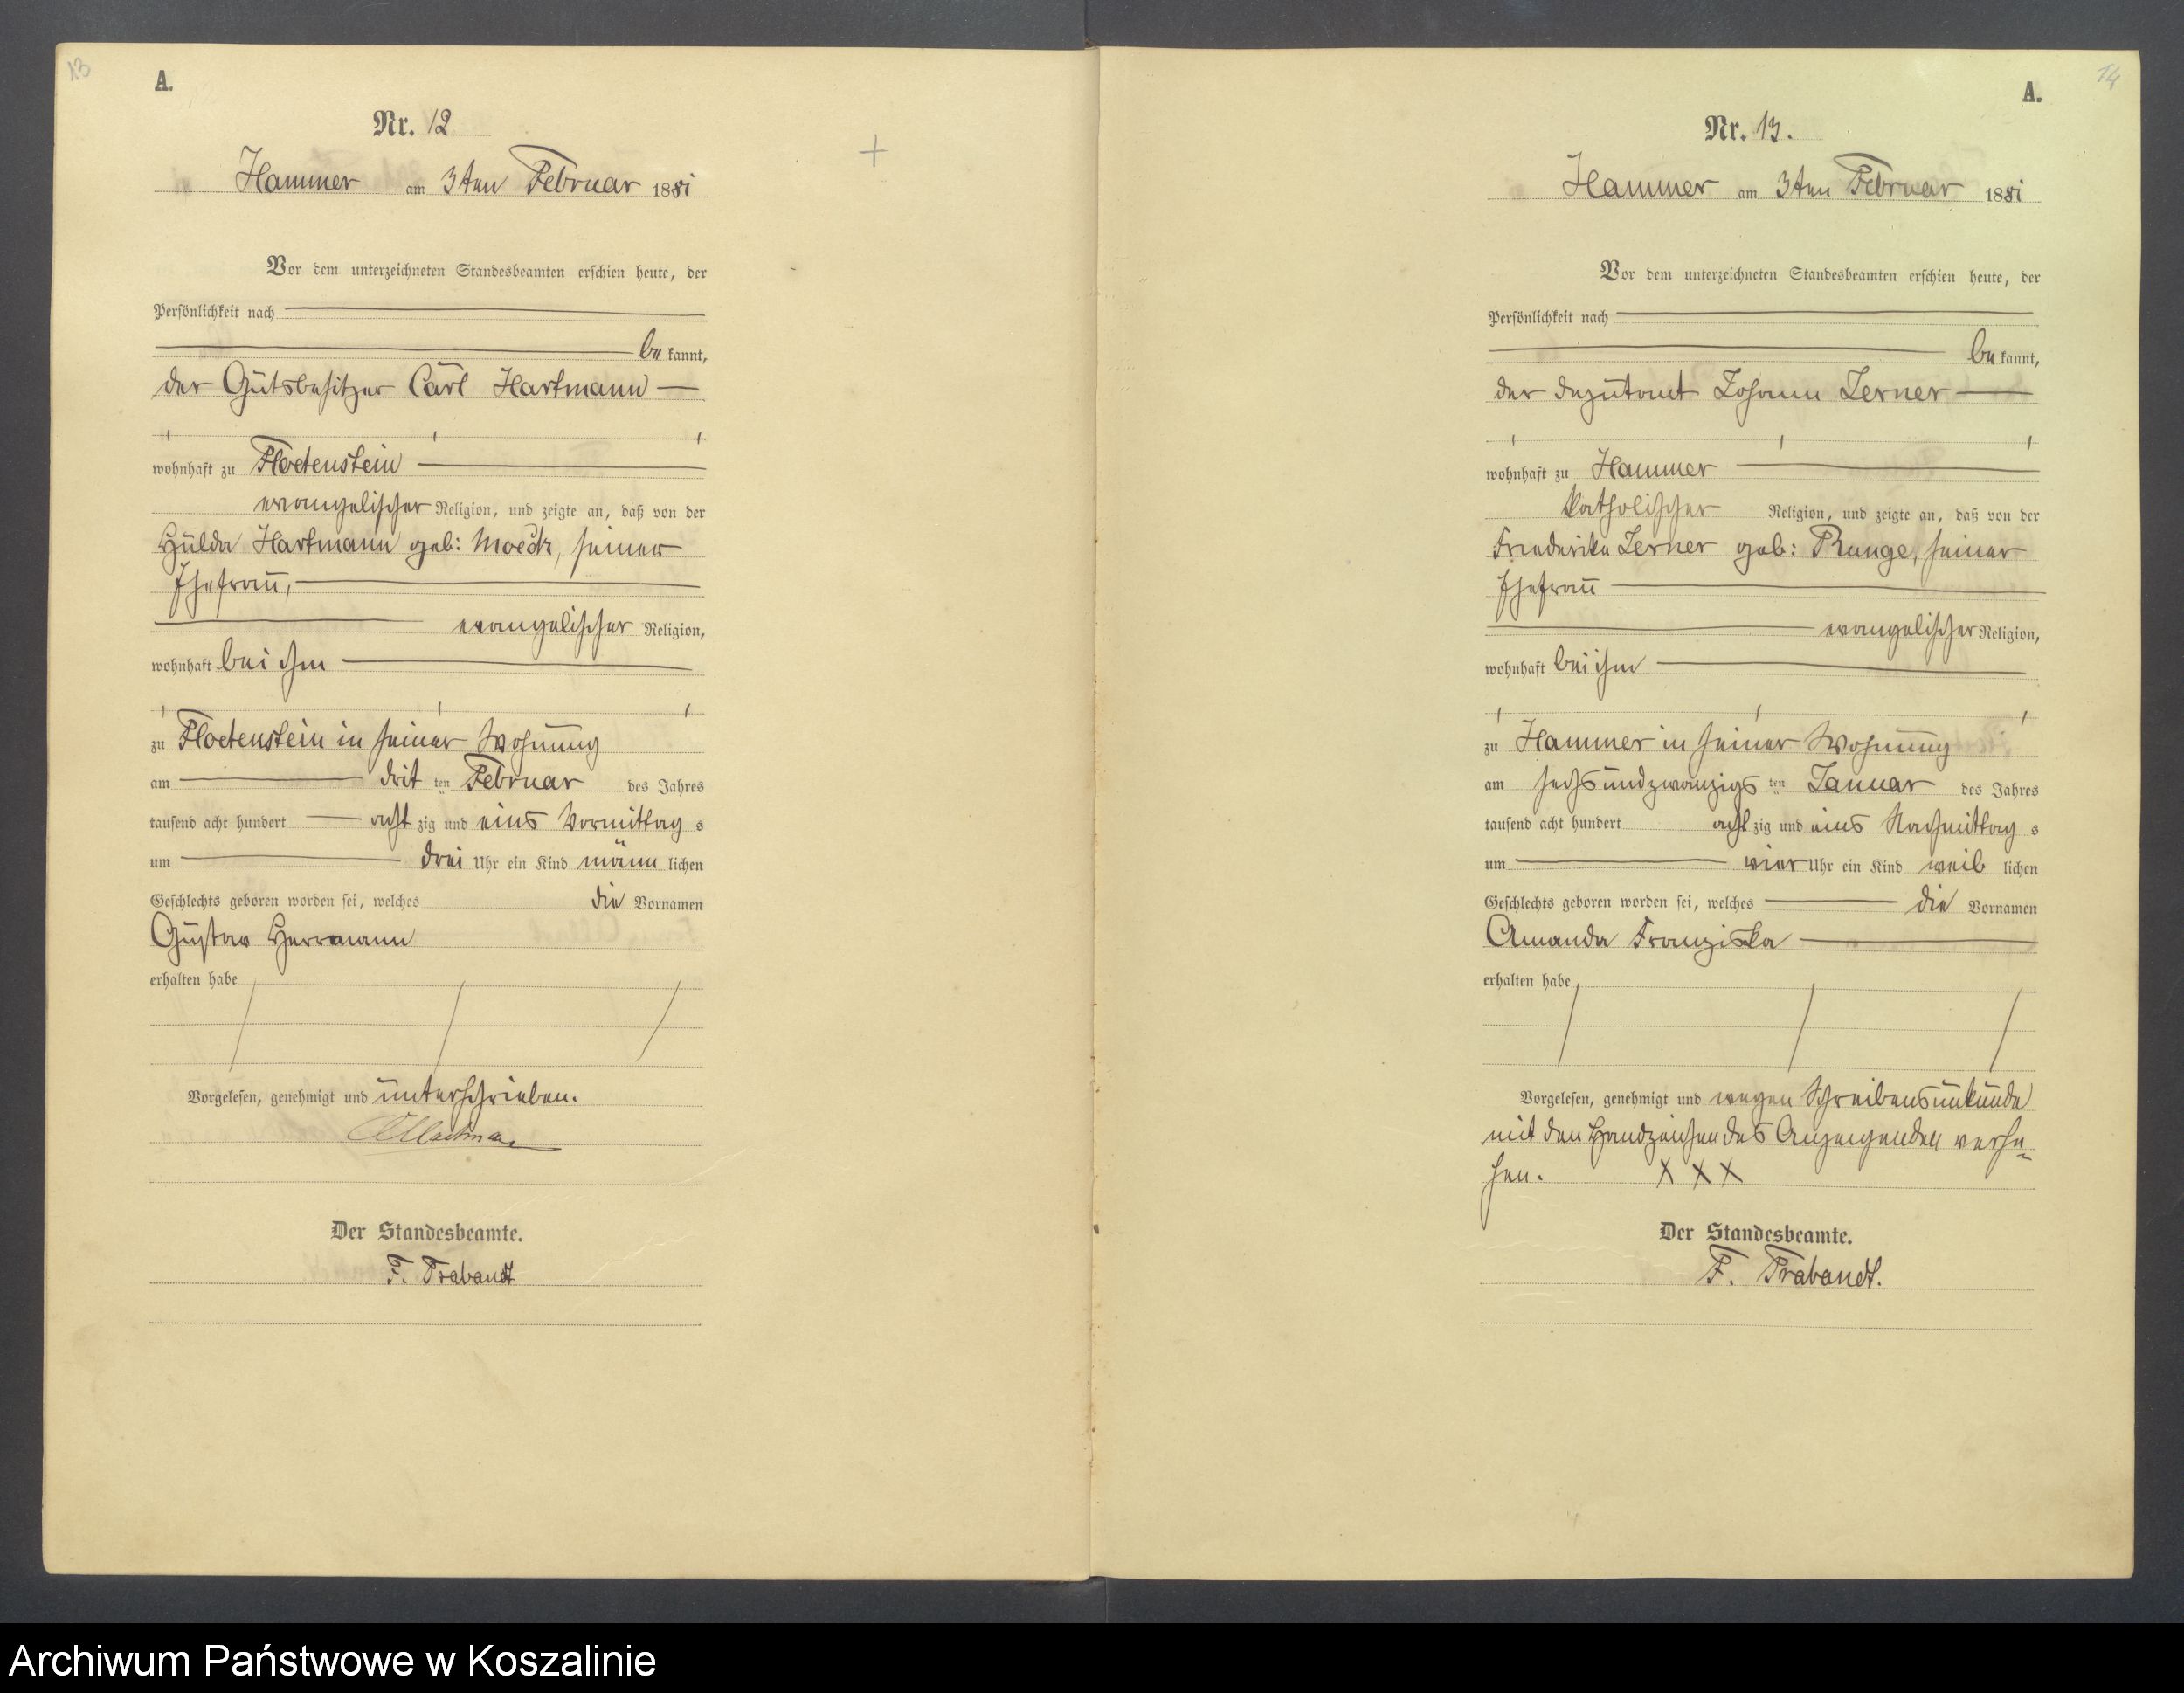 13
A.
Nr. 12
Hammer am 3ten Februar 1881
Vor dem unterzeichneten Standesbeamten erschien heute, der
Persönlichkeit nach
bekannt,
der Gutsbesitzer Carl Hartmann
wohnhaft zu Floetenstein
evangelischer Religion, und zeigte an, daß von der
Hulda Hartmann geb: Moeck, seiner
Ehefrau,
evangelischer Religion,
wohnhaft bei ihm
zu Floetenstein in seiner Wohnung
am drit ten Februar des Jahres
tausend acht hundert acht zig und eins Vormittag s
um drei Uhr ein Kind männ lichen
Geschlechts geboren worden sei, welches die Vornamen
Gustav Herrmann
erhalten habe
Vorgelesen, genehmigt und unterschrieben.
Der Standesbeamte.
F. Trabandt
14
A.
Nr. 13.
Hammer am 3ten Februar 1881
Vor dem unterzeichneten Standesbeamten erschien heute, der
Persönlichkeit nach
bekannt,
der Deputant Johann Lerner
wohnhaft zu Hammer
katholischer Religion, und zeigte an, daß von der
Friederike Lerner geb: Runge, seiner
Ehefrau
evangelischer Religion,
wohnhaft bei ihm
zu Hammer in seiner Wohnung
am sechsundzwanzigs ten Januar des Jahres
tausend acht hundert acht zig und eins Nachmittag s
um vier Uhr ein Kind weib lichen
Geschlechts geboren worden sei, welches die Vornamen
Amanda Franziska
erhalten habe
Vorgelesen, genehmigt und wegen Schreibensunkunde
mit den Handzeichen des Anzeigenden verse-
hen. X X X
Der Standesbeamte.
F. Trabandt.
Archiwum Państwowe w Koszalinie